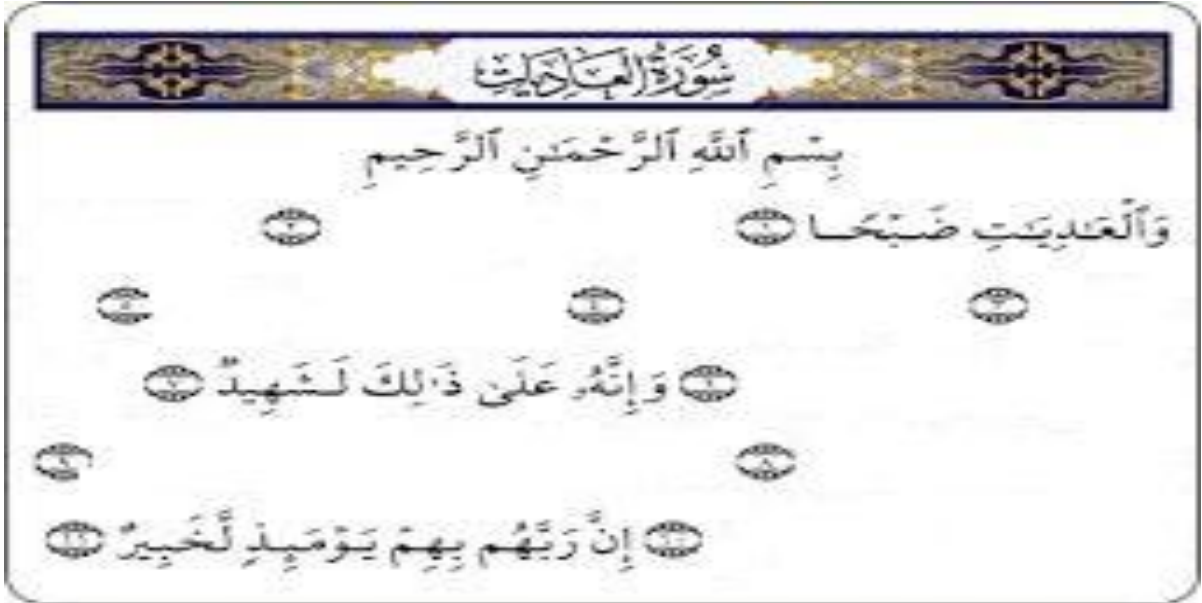 سُورَةُ العَادِيَاتِ
بِسْمِ ٱللَّهِ ٱلرَّحْمَـٰنِ ٱلرَّحِيمِ
وَٱلْعَـٰدِيَـٰتِ ضَبْحًا ١ ٢
٣ ٤ ٥
٦ وَإِنَّهُۥ عَلَىٰ ذَٰلِكَ لَشَهِيدٌ ٧
٨ ٩
١٠ إِنَّ رَبَّهُم بِهِمْ يَوْمَئِذٍ لَّخَبِيرٌ ١١